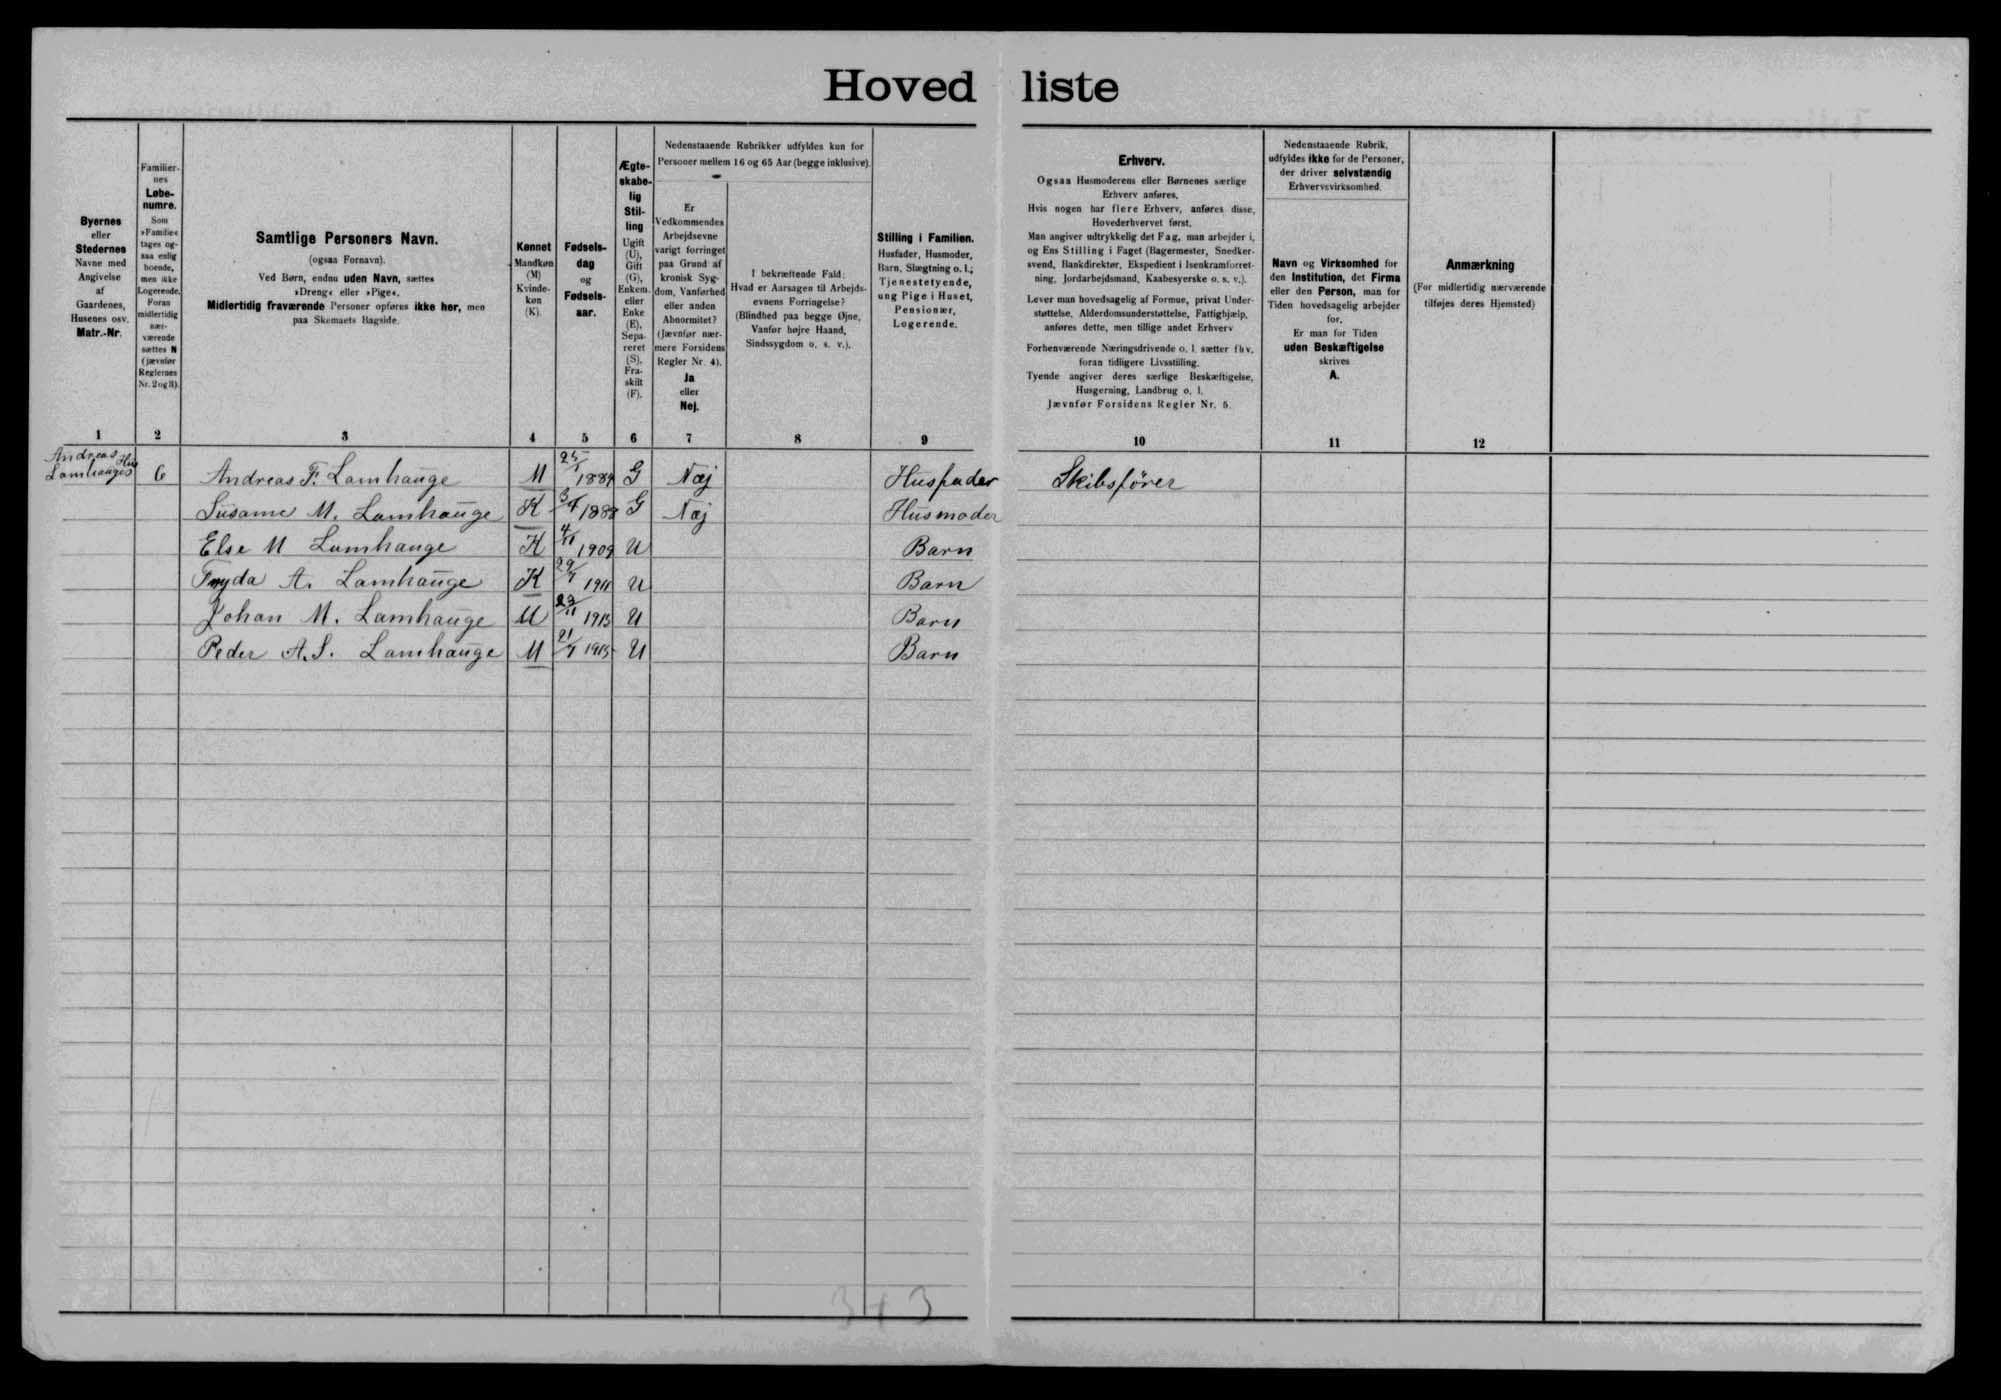 Hovedliste
Byernes
eller
Stedernes
Navne med
Angivelse
af
Gaardenes,
Husenes osv.
Matr.-Nr.
Familier-
nes
Løbe-
numre.
Som
»Familie«
tages og-
saa enlig
boende,
men ikke
Logerende.
Foran
midlertidig
nær-
værende
sættes N
(jævnfør
Reglernes
Nr. 2 og 3).
Samtlige Personers Navn.
(ogsaa Fornavn).
Ved Børn, endnu uden Navn, sættes
»Dreng« eller »Pige«.
Midlertidig fraværende Personer opføres ikke her, men
paa Skemaets Bagside.
Kønnet
Mandkøn
(M)
Kvinde-
køn
(K).
Fødsels-
dag
og
Fødsels-
aar.
Ægte-
skabe-
lig
Stil-
ling
Ugift
(U),
Gift
(G),
Enkem.
eller
Enke
(E),
Sepa-
reret
(S),
Fra-
skilt
(F).
Nedenstaaende Rubrikker udfyldes kun for
Personer mellem 16 og 65 Aar (begge inklusive).
Er
Vedkommendes
Arbejdsevne
varigt forringet
paa Grund af
kronisk Syg-
dom, Vanførhed
eller anden
Abnormitet?
(Jævnfør nær-
mere Forsidens
Regler Nr. 4).
Ja
eller
Nej.
I bekræftende Fald:
Hvad er Aarsagen til Arbejds-
evnens Forringelse?
(Blindhed paa begge Øjne,
Vanfør højre Haand,
Sindssygdom o. s. v.).
Stilling i Familien.
Husfader, Husmoder,
Barn, Slægtning o. l.;
Tjenestetyende,
ung Pige i Huset,
Pensionær,
Logerende.
Erhverv.
Ogsaa Husmoderens eller Børnenes særlige
Erhverv anføres.
Hvis nogen har flere Erhverv, anføres disse,
Hovederhvervet først.
Man angiver udtrykkelig det Fag, man arbejder i,
og Ens Stilling i Faget (Bagermester, Snedker-
svend, Bankdirektør, Ekspedient i Isenkramforret-
ning, Jordarbejdsmand, Kaabesyerske o. s. v.).
Lever man hovedsagelig af Formue, privat Under-
støttelse, Alderdomsunderstøttelse, Fattighjælp,
anføres dette, men tillige andet Erhverv
Forhenværende Næringsdrivende o. l. sætter fhv.
foran tidligere Livsstilling.
Tyende angiver deres særlige Beskæftigelse,
Husgerning, Landbrug o. l.
Jævnfør Forsidens Regler Nr. 5.
Nedenstaaende Rubrik,
udfyldes ikke for de Personer,
der driver selvstændig
Erhvervsvirksomhed.
Navn og Virksomhed for
den Institution, det Firma
eller den Person, man for
Tiden hovedsagelig arbejder
for.
Er man for Tiden
uden Beskæftigelse
skrives
A.
Anmærkning
(For midlertidig nærværende
tilføjes deres Hjemsted)
1 2 3 4 5 6 7 8 9 10 11 12
Andreas
Lamhauges Hus 6 Andreas F. Lamhauge M 25/1 1884 G Nej Husfader Skibsfører
Susanne M. Lamhauge K 1888 G Nej Husmoder
Else M Lamhauge K 4/11 1909 U Barn
A. Lamhauge K 1911 U Barn
Johan M. Lamhauge M 23/11 1913 U Barn
Peder A.S. Lamhauge M 1915 U Barn
343